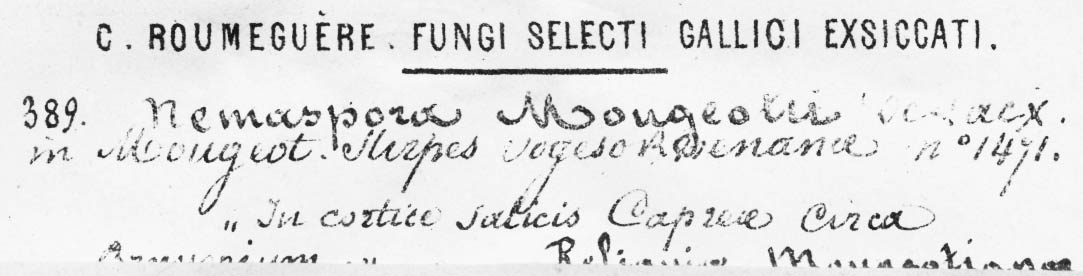 C. ROUMEGUÈRE. FUNGI SELECTI GALLICI EXSICCATI.
389. Nemaspora Mougeotii
in Mougeot. Stirpes Vogeso Rhenanæ nº 1471.
„ In cortice Salicis Capreæ Circa
Bruyerium „ Reliquiæ Mougeotianæ